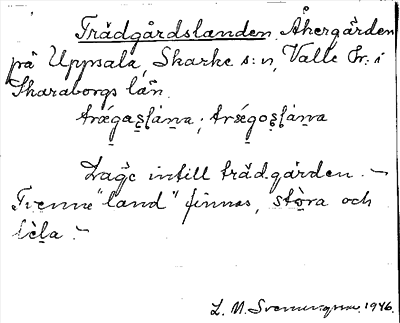 Trädgårdslanden. Åkergärden
på Uppsala, Skarke s:n, Valle hr: i
Skaraborgs län.
trǽgas̠l̥án̠a; trǽgo̠s̠l̥án̠a
Låge intill trädgården. –
Tvenne "land" finnas, sto̠ra och
lèl̠a. –
L. M. Svenungsson. 1946.